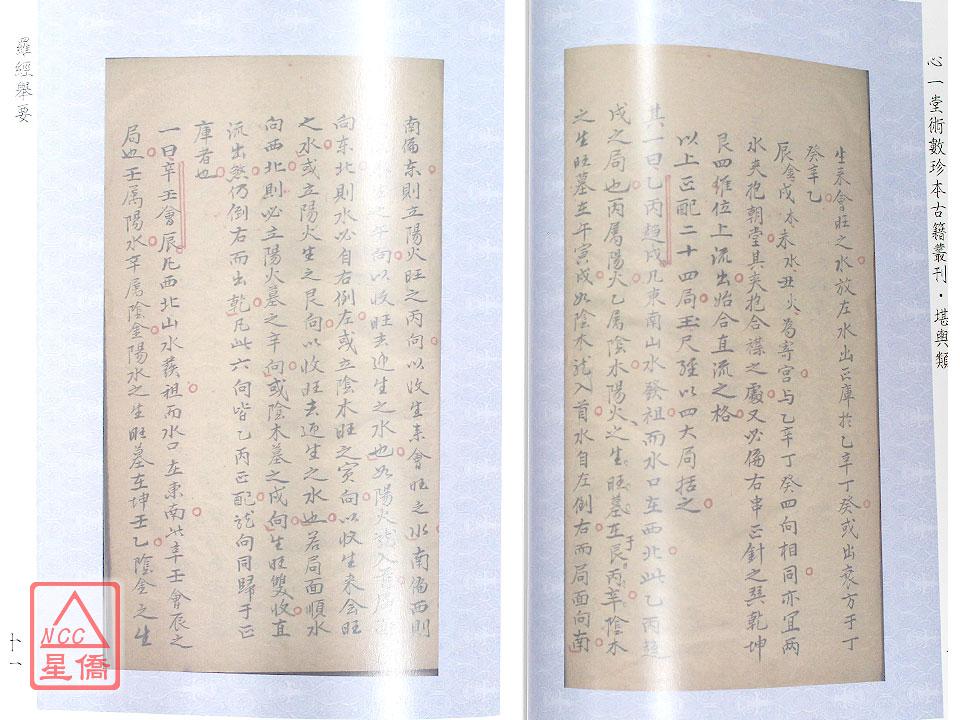 心一堂術數珍本古籍叢刊·堪輿類
生來會旺之水放左水出正庫於乙辛丁癸或出衰方于丁
癸辛乙
辰金戌木未水丑火為寄宮与乙辛丁癸四向相同亦宜两
水夾抱朝堂其夾抱合謀之處又必偏右串正針之巽乾坤
艮四維位上流出始合直流之格
以上正配二十四局玉尺經以四大局括之
其一曰乙丙趋戌凡東南山水發祖而水口在西北此乙丙趋
戌之局也丙属陽火乙属陰木陽火之生旺墓在艮丙辛陰木
之生旺墓在午寅戌如陰木龍入首水自左倒右而局面向南
南偏东則立陽火旺之丙向以收生来會旺之水南偏西則
午向以收旺去迎生之水也如陽火龍入
向东北則水必自右倒左或立陰木旺之寅向以收生来会旺
之水或立陽火生之艮向以收旺去迎生之水也若局面順水
向西北則必立陽火墓之辛向或陰木墓之戌向生旺雙收直
流出煞仍倒右而出乾凡此六向皆乙丙正配龍向同歸于正
庫者也
一曰辛壬會辰凡西北山水發祖而水口在東南此辛壬會辰之
局也壬属陽水辛属陰金陽水之生旺墓在坤壬乙陰金之生
羅經舉要
十一
NCC
星僑